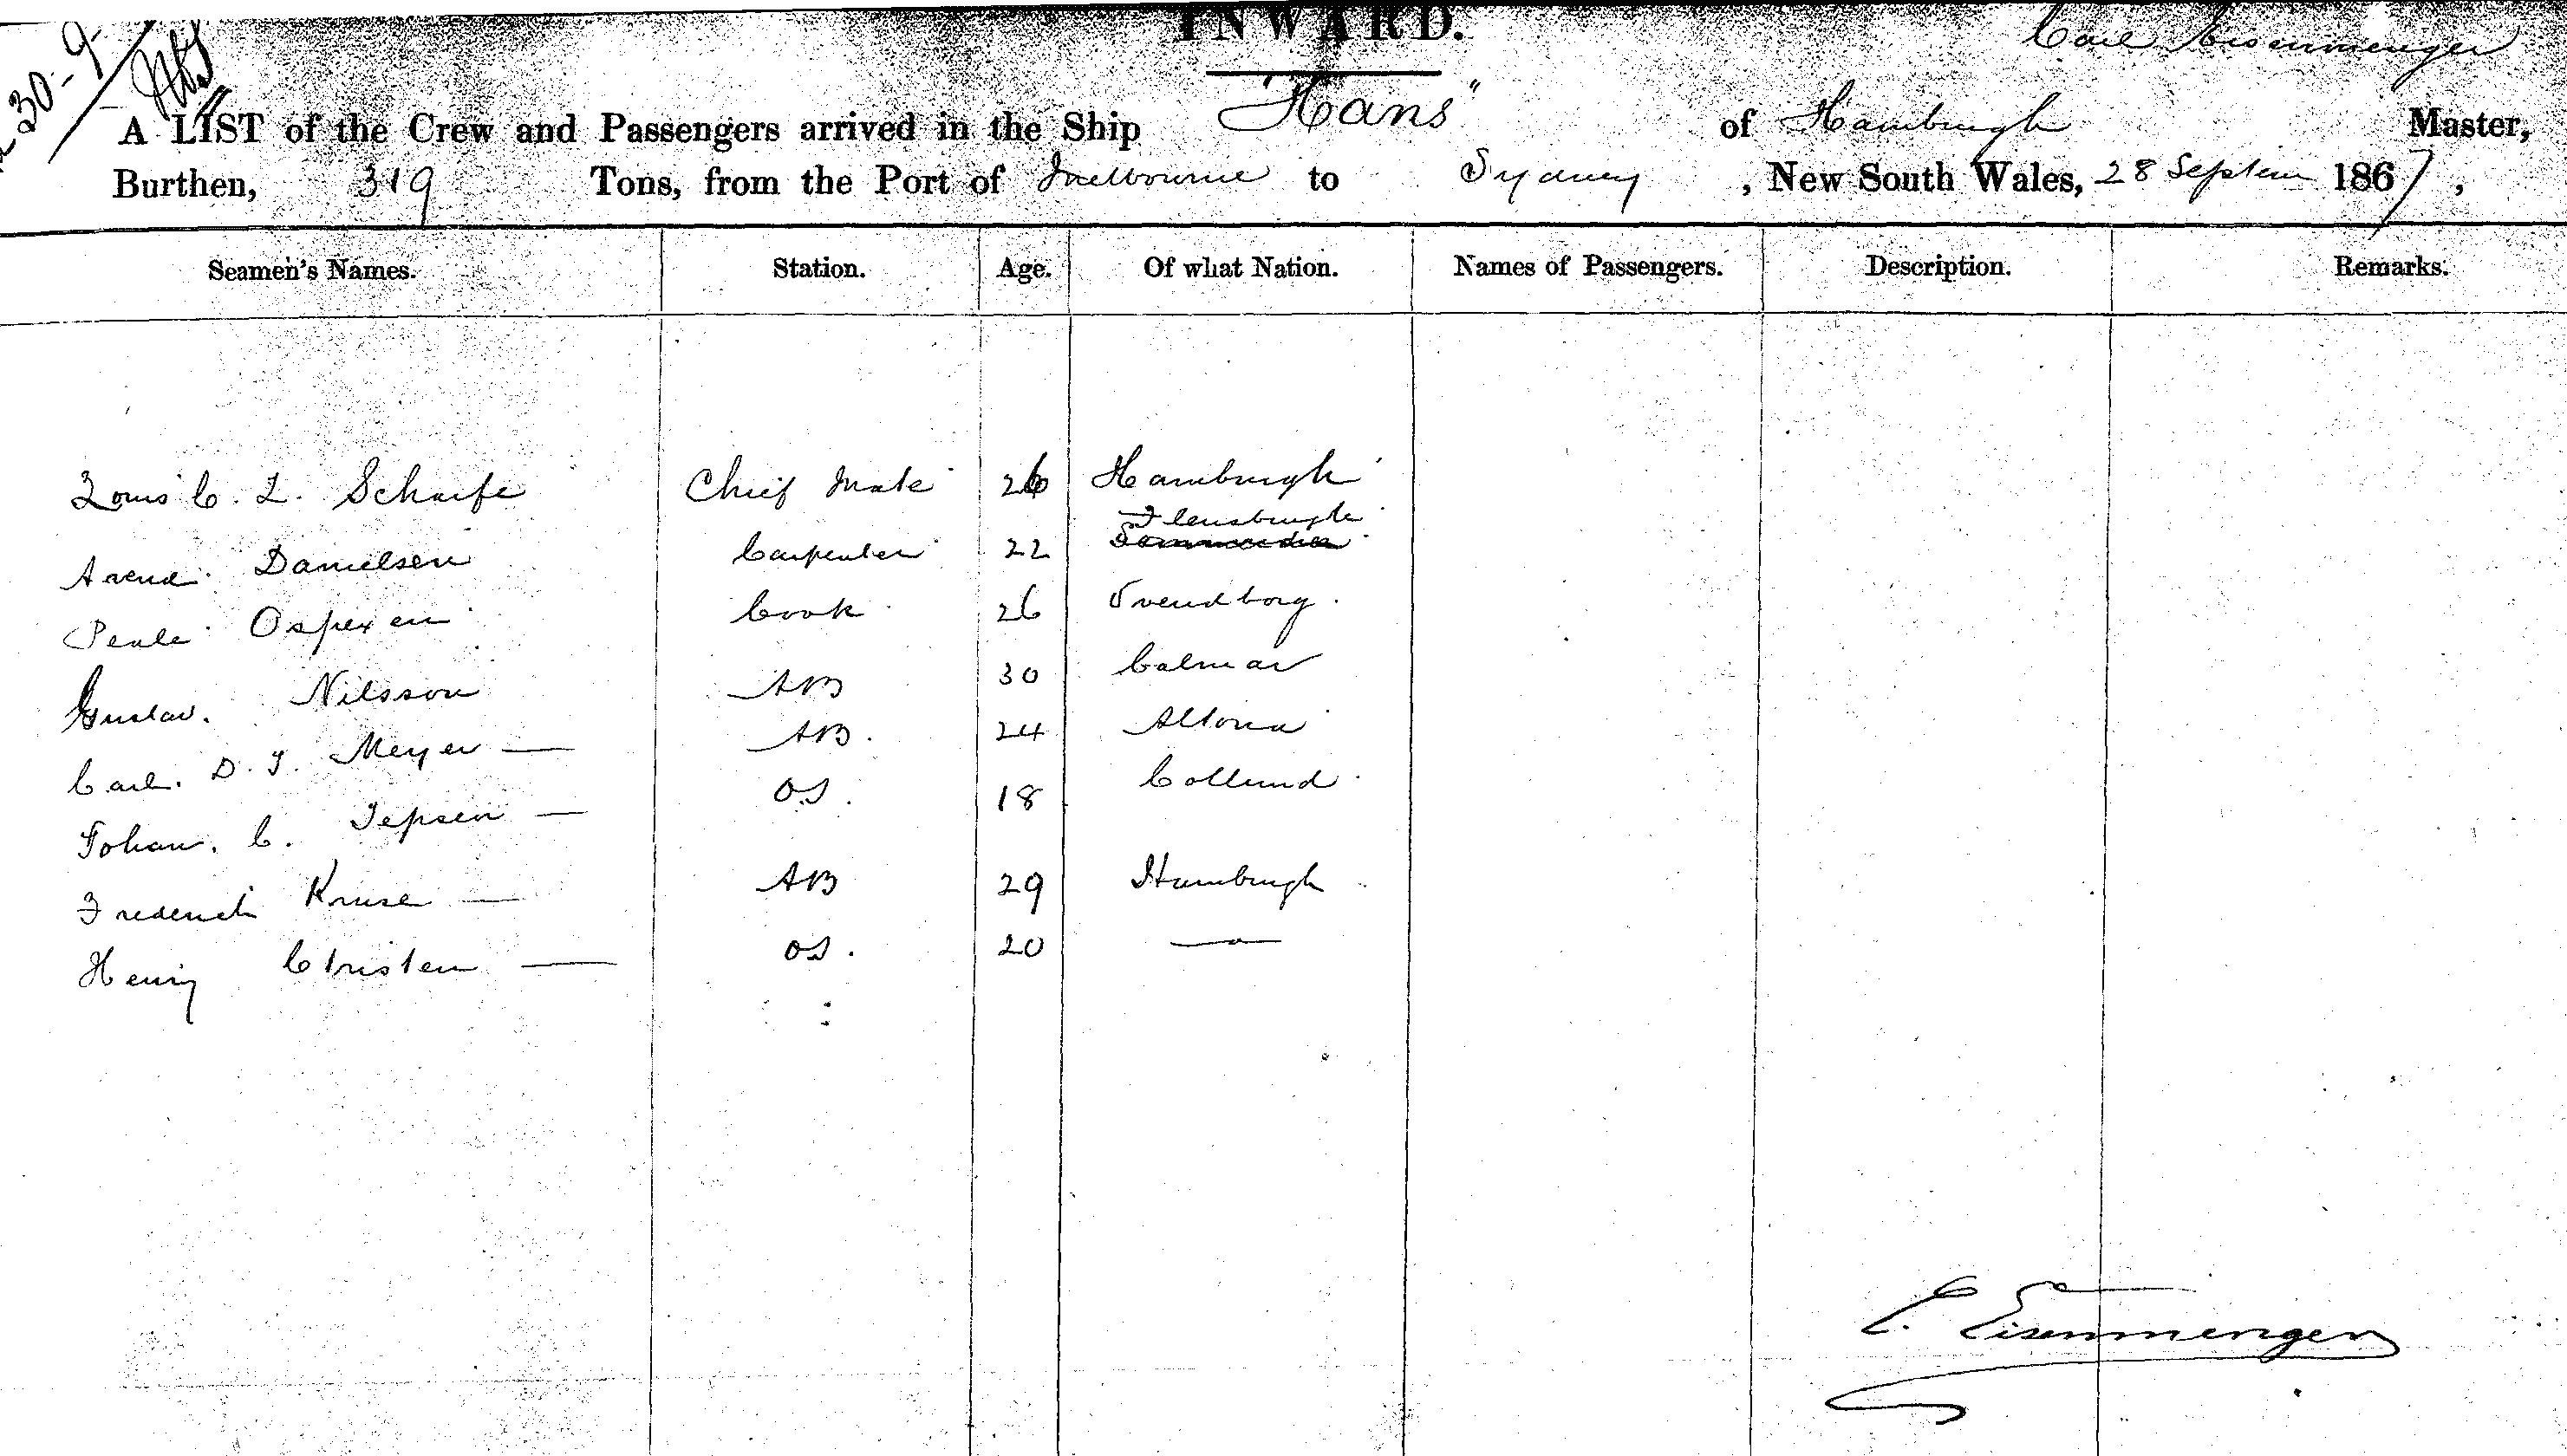 INWARD.
30-9
Carl Eisenmenger
A LIST of the Crew and Passengers arrived in the Ship "Hans" of Hamburgh Master,
Burthen, 319 Tons, from the Port of Melbourne to Sydney, New South Wales, 28 Septem 1867,
Seamen's Names. Station. Age. Of what Nation. Names of Passengers. Description. Remarks.
Louis C. L. Scharfe Chief Mate 26 Hamburgh
Flensburgh
Arend Danielsen Carpenter 22
Cook 26 Svendborg.
Gustav. Nilsson AB 30 Calmar
Carl. D. J. Meyer — AB. 24 Altona
Johan. C. Jepsen — O.S. 18 Collund
Frederich Kruse — AB 29 Hamburgh
Henry Christen — OS. 20 —
C. Eisenmenger